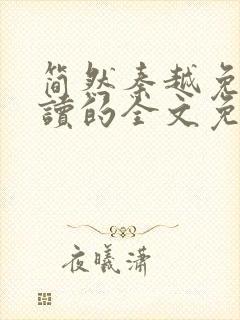 简然秦越免
讀的全文免
夜曦潇